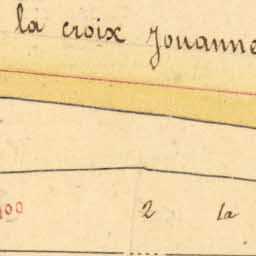 la croix Jouanne
100 2 la